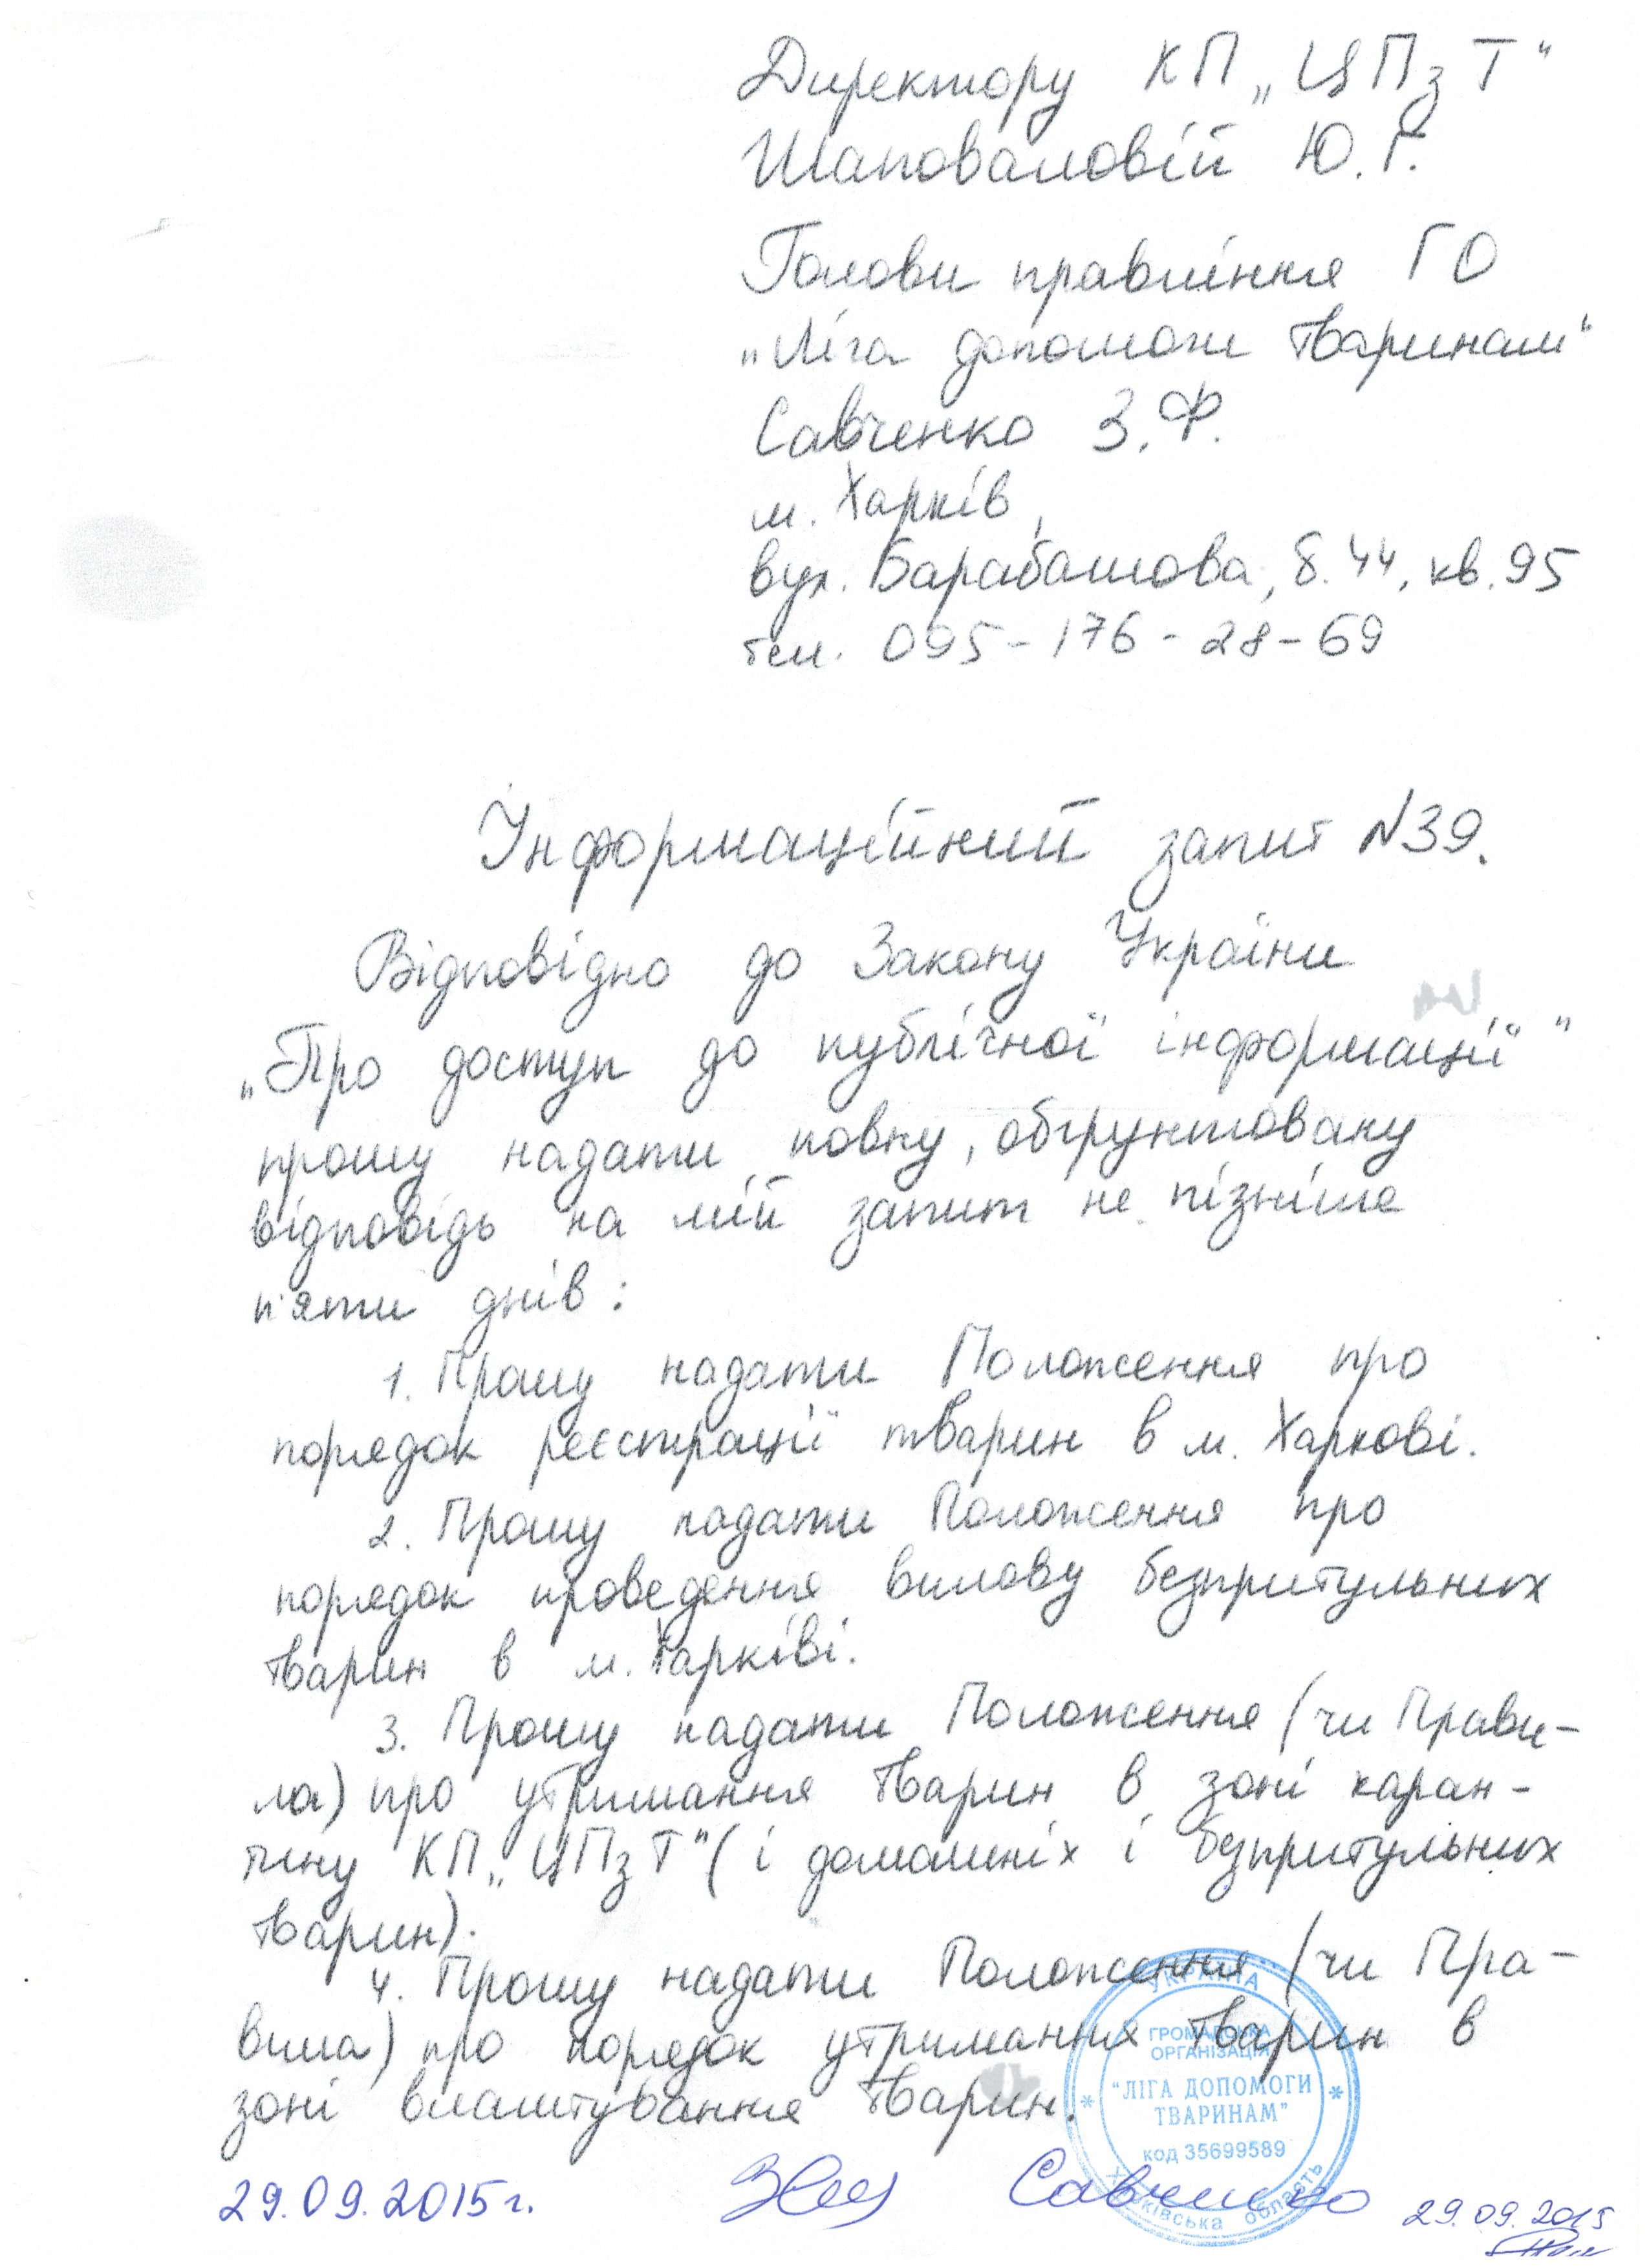 Директору КП „ЦПзТ"
Шаповаловій Ю.Г.
Голови правління ГО
„Ліга допомоги тваринам"
Савченко З.Ф.
м. Харків,
вул. Барабашова, б. 44, кв. 95
тел. 095-176-28-69
Інформаційний запит №39.
Відповідно до Закону України
„Про доступ до публічної інформації"
прошу надати повну, обгрунтовану
відповідь на мій запит не пізніше
п'яти днів:
1. Прошу надати Положення про
порядок реєстрації тварин в м. Харкові.
2. Прошу надати Положення про
порядок проведення вилову безпритульних
тварин в м. Харківі.
3. Прошу надати Положення (чи Прави-
ла) про утримання тварин в зоні каран-
тину КП „ЦПзТ" (і домашніх і безпритульних
тварин).
4. Прошу надати Положення (чи Пра-
вила) про порядок утримання тварин в
зоні влаштування тварин.
УКРАЇНА
ГРОМАДСЬКА
ОРГАНІЗАЦІЯ
"ЛІГА ДОПОМОГИ
ТВАРИНАМ"
код 35699589
Харківська область
29.09.2015г. Савченко 29.09.2015